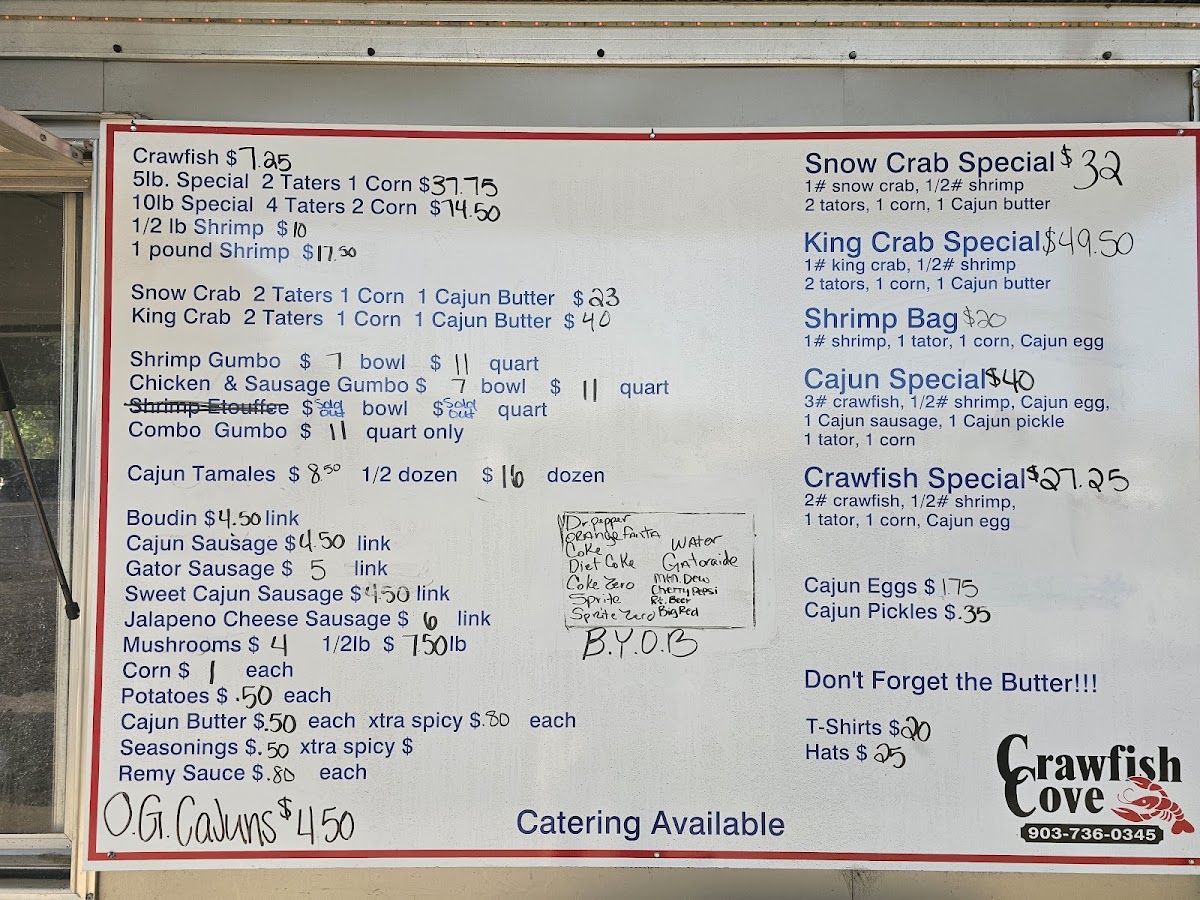 Crawfish $7.25
5lb. Special 2 Taters 1 Corn $37.75
10lb Special 4 Taters 2 Corn $74.50
1/2 lb Shrimp $10
1 pound Shrimp $17.50
Snow Crab 2 Taters 1 Corn 1 Cajun Butter $23
King Crab 2 Taters 1 Corn 1 Cajun Butter $40
Shrimp Gumbo $7 bowl $11 quart
Chicken & Sausage Gumbo $7 bowl $11 quart
Shrimp Etouffee $Sold out bowl $Sold out quart
Combo Gumbo $11 quart only
Cajun Tamales $8.50 1/2 dozen $16 dozen
Boudin $4.50 link
Cajun Sausage $4.50 link
Gator Sausage $5 link
Sweet Cajun Sausage $4.50 link
Jalapeno Cheese Sausage $6 link
Mushrooms $4 1/2lb $7.50lb
Corn $1 each
Potatoes $.50 each
Cajun Butter $.50 each xtra spicy $.80 each
Seasonings $.50 xtra spicy $
Remy Sauce $.80 each
O.G. Cajuns $4.50
Dr pepper
Orange Fanta
Coke
Diet Coke
Coke Zero
Sprite
Sprite Zero
Water
Gatoraide
Mtn. Dew
Cherry Pepsi
Rt. Beer
Big Red
B.Y.O.B
Catering Available
Snow Crab Special $32
1# snow crab, 1/2# shrimp
2 tators, 1 corn, 1 Cajun butter
King Crab Special $49.50
1# king crab, 1/2# shrimp
2 tators, 1 corn, 1 Cajun butter
Shrimp Bag $20
1# shrimp, 1 tator, 1 corn, Cajun egg
Cajun Special $40
3# crawfish, 1/2# shrimp, Cajun egg,
1 Cajun sausage, 1 Cajun pickle
1 tator, 1 corn
Crawfish Special $27.25
2# crawfish, 1/2# shrimp,
1 tator, 1 corn, Cajun egg
Cajun Eggs $1.75
Cajun Pickles $.35
Don't Forget the Butter!!!
T-Shirts $20
Hats $25
Crawfish
Cove
903-736-0345